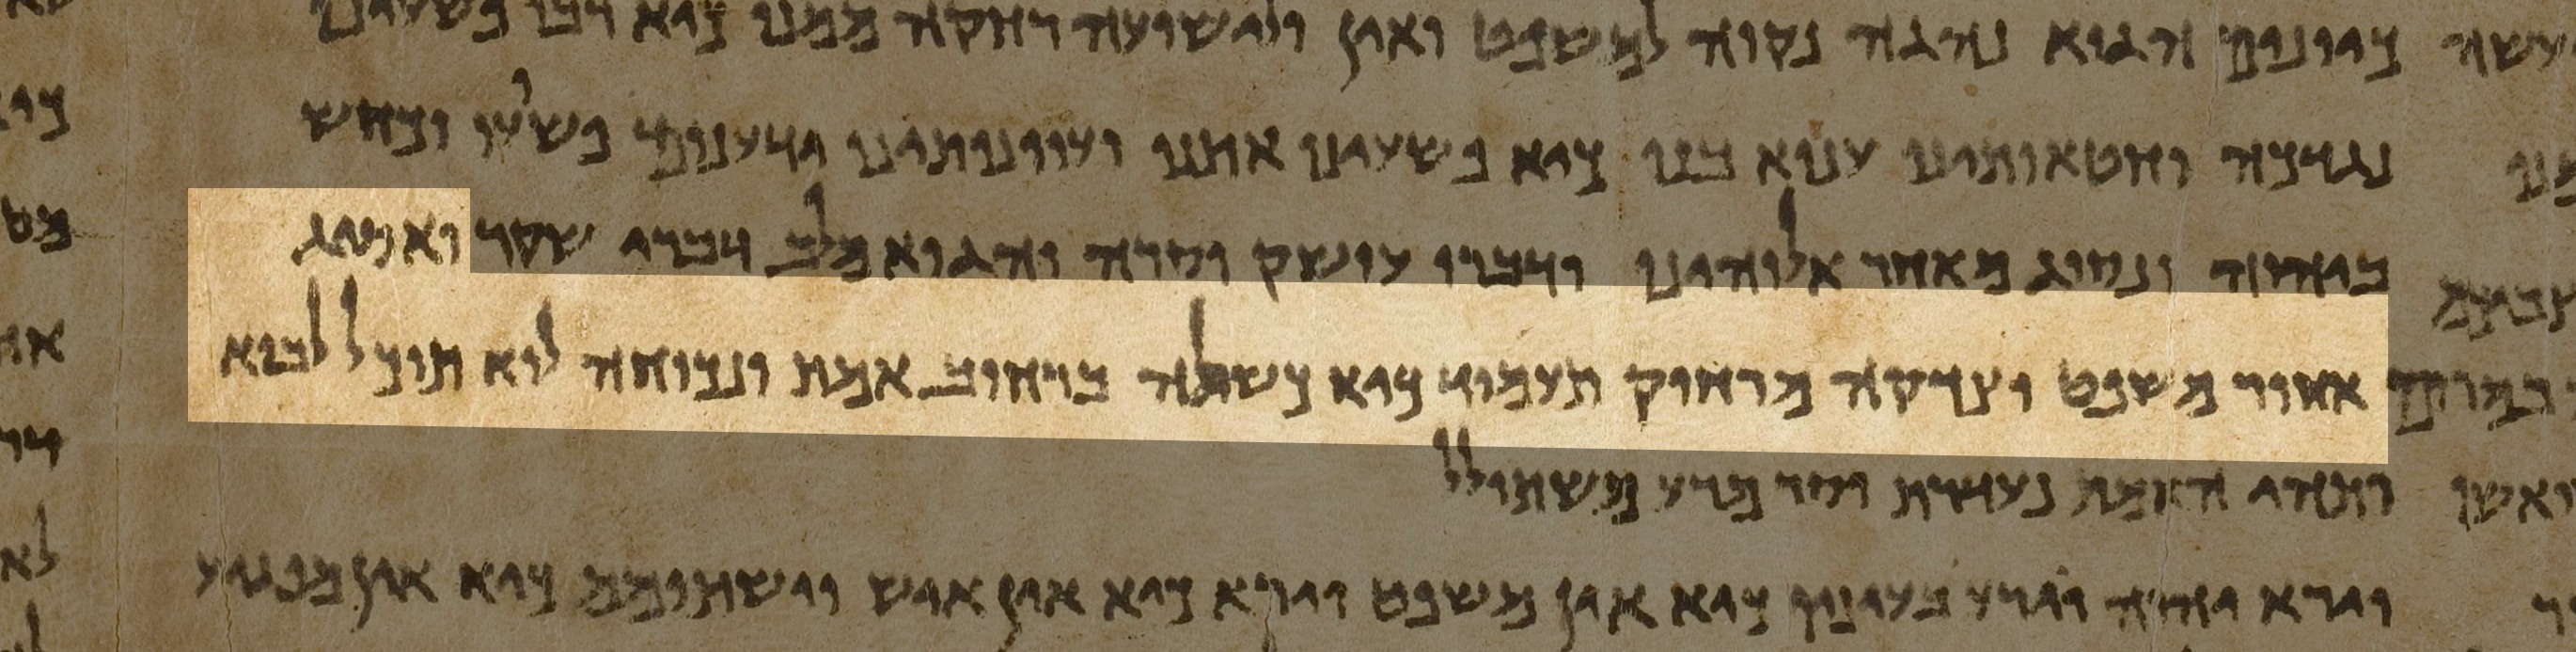 כיונים הגוא נהגה נקוה למשפט ואין ולישועה רחקה ממנו כיא רבו פשעינו
נגדכה וחטאותינו ענוא בנו כיא פשעינו אתנו ועוונותינו ידענום וכחש
ביהוה ונסוג מאחר אלוהינו ודברו עושק וסרה והגוא מלב דברי שקר ואסיג
אחור משפט וצדקה מרחוק תעמוד כיא כשלה ברחוב אמת ונכוחה לוא תוכל לבוא
ותהי האמת נעדרת וסר מרע משתולל
וירא יהוה וירע בעיניו כיא אין משפט וירא כיא אין איש וישתומם כיא אין מפגיע